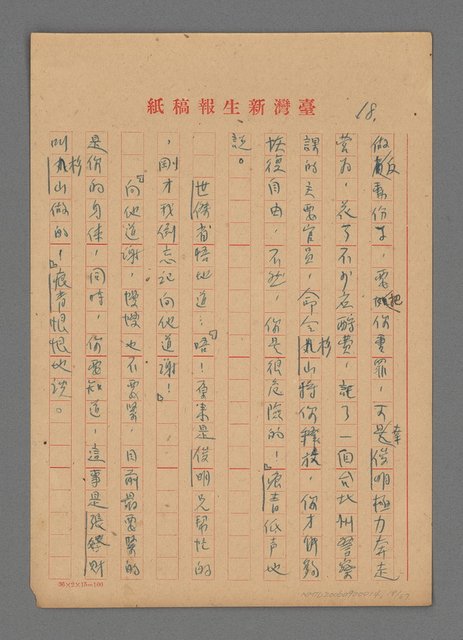 臺灣新生報稿紙
18.
做叛亂份子,要把你重罪,幸虧是俊明極力奔走
營為,花了不少应酬費,託了一個台北州警察
課的主要官員,命令杉山將你釋放,你才能夠
恢復自由,不然,你是很危險的!』痕青低声地
說。
世傑省悟地道:『唔!原來是俊明兄幫忙的
,剛才我倒忘記向他道謝!』
『向他道謝,慢慢也不要緊,目前最要緊的
是你的身体,同時,你要知道,這事是張發財
叫杉山做的!』痕青恨恨地說。
36×2×15=100